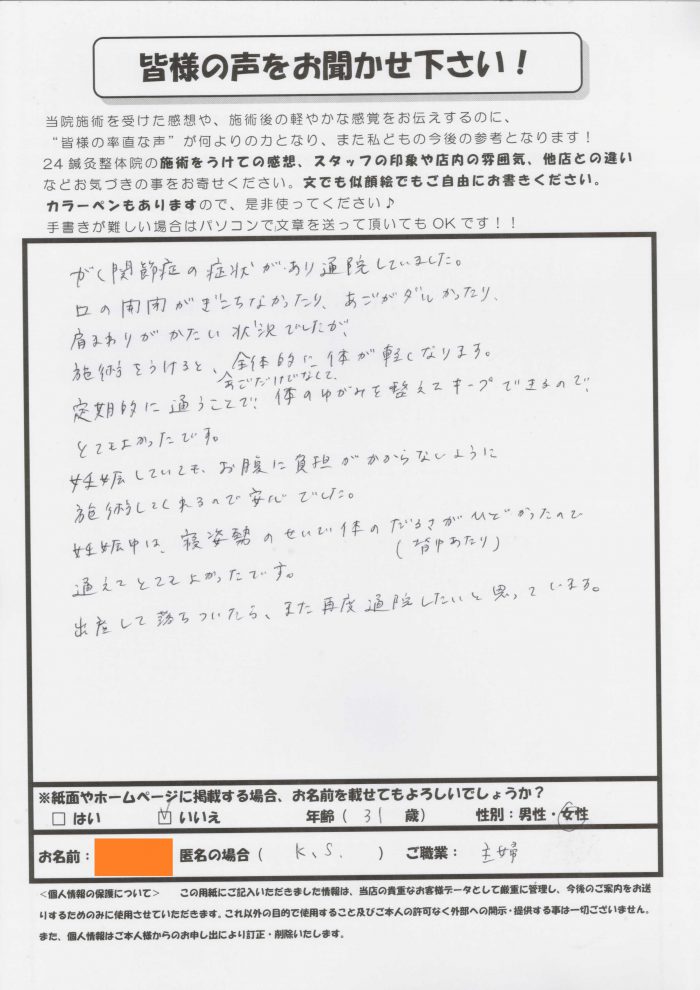 皆様の声をお聞かせ下さい！
当院施術を受けた感想や、施術後の軽やかな感覚をお伝えするのに、
“皆様の率直な声”が何よりの力となり、また私どもの今後の参考となります！
24鍼灸整体院の施術をうけての感想、スタッフの印象や店内の雰囲気、他店との違い
などお気づきの事をお寄せください。文でも似顔絵でもご自由にお書きください。
カラーペンもありますので、是非使ってください♪
手書きが難しい場合はパソコンで文章を送って頂いてもOKです！！
がく関節症の症状があり通院していました。
口の開閉がぎこちなかったり、あごがダルかったり、
肩まわりがかたい状況でしたが、
施術をうけると、全体的に体が軽くなります。
あごだけでなくて、
定期的に通うことで、体のゆがみを整えてキープできるので、
とてもよかったです。
妊娠していても、お腹に負担がかからないように
施術してくれるので安心でした。
妊娠中は、寝姿勢のせいで体のだるさがひどかったので
(背中あたり)
通えてとてもよかったです。
出産して落ちついたら、また再度通院したいと思っています。
※紙面やホームページに掲載する場合、お名前を載せてもよろしいでしょうか？
□ はい ☑ いいえ 年齢（ 31 歳） 性別：男性・女性
お名前： 匿名の場合（ K.S. ） ご職業： 主婦
＜個人情報の保護について＞ この用紙にご記入いただきました情報は、当店の貴重なお客様データとして厳重に管理し、今後のご案内をお送
りするためのみに使用させていただきます。これ以外の目的で使用すること及びご本人の許可なく外部への開示・提供する事は一切ございません。
また、個人情報はご本人様からのお申し出により訂正・削除いたします。